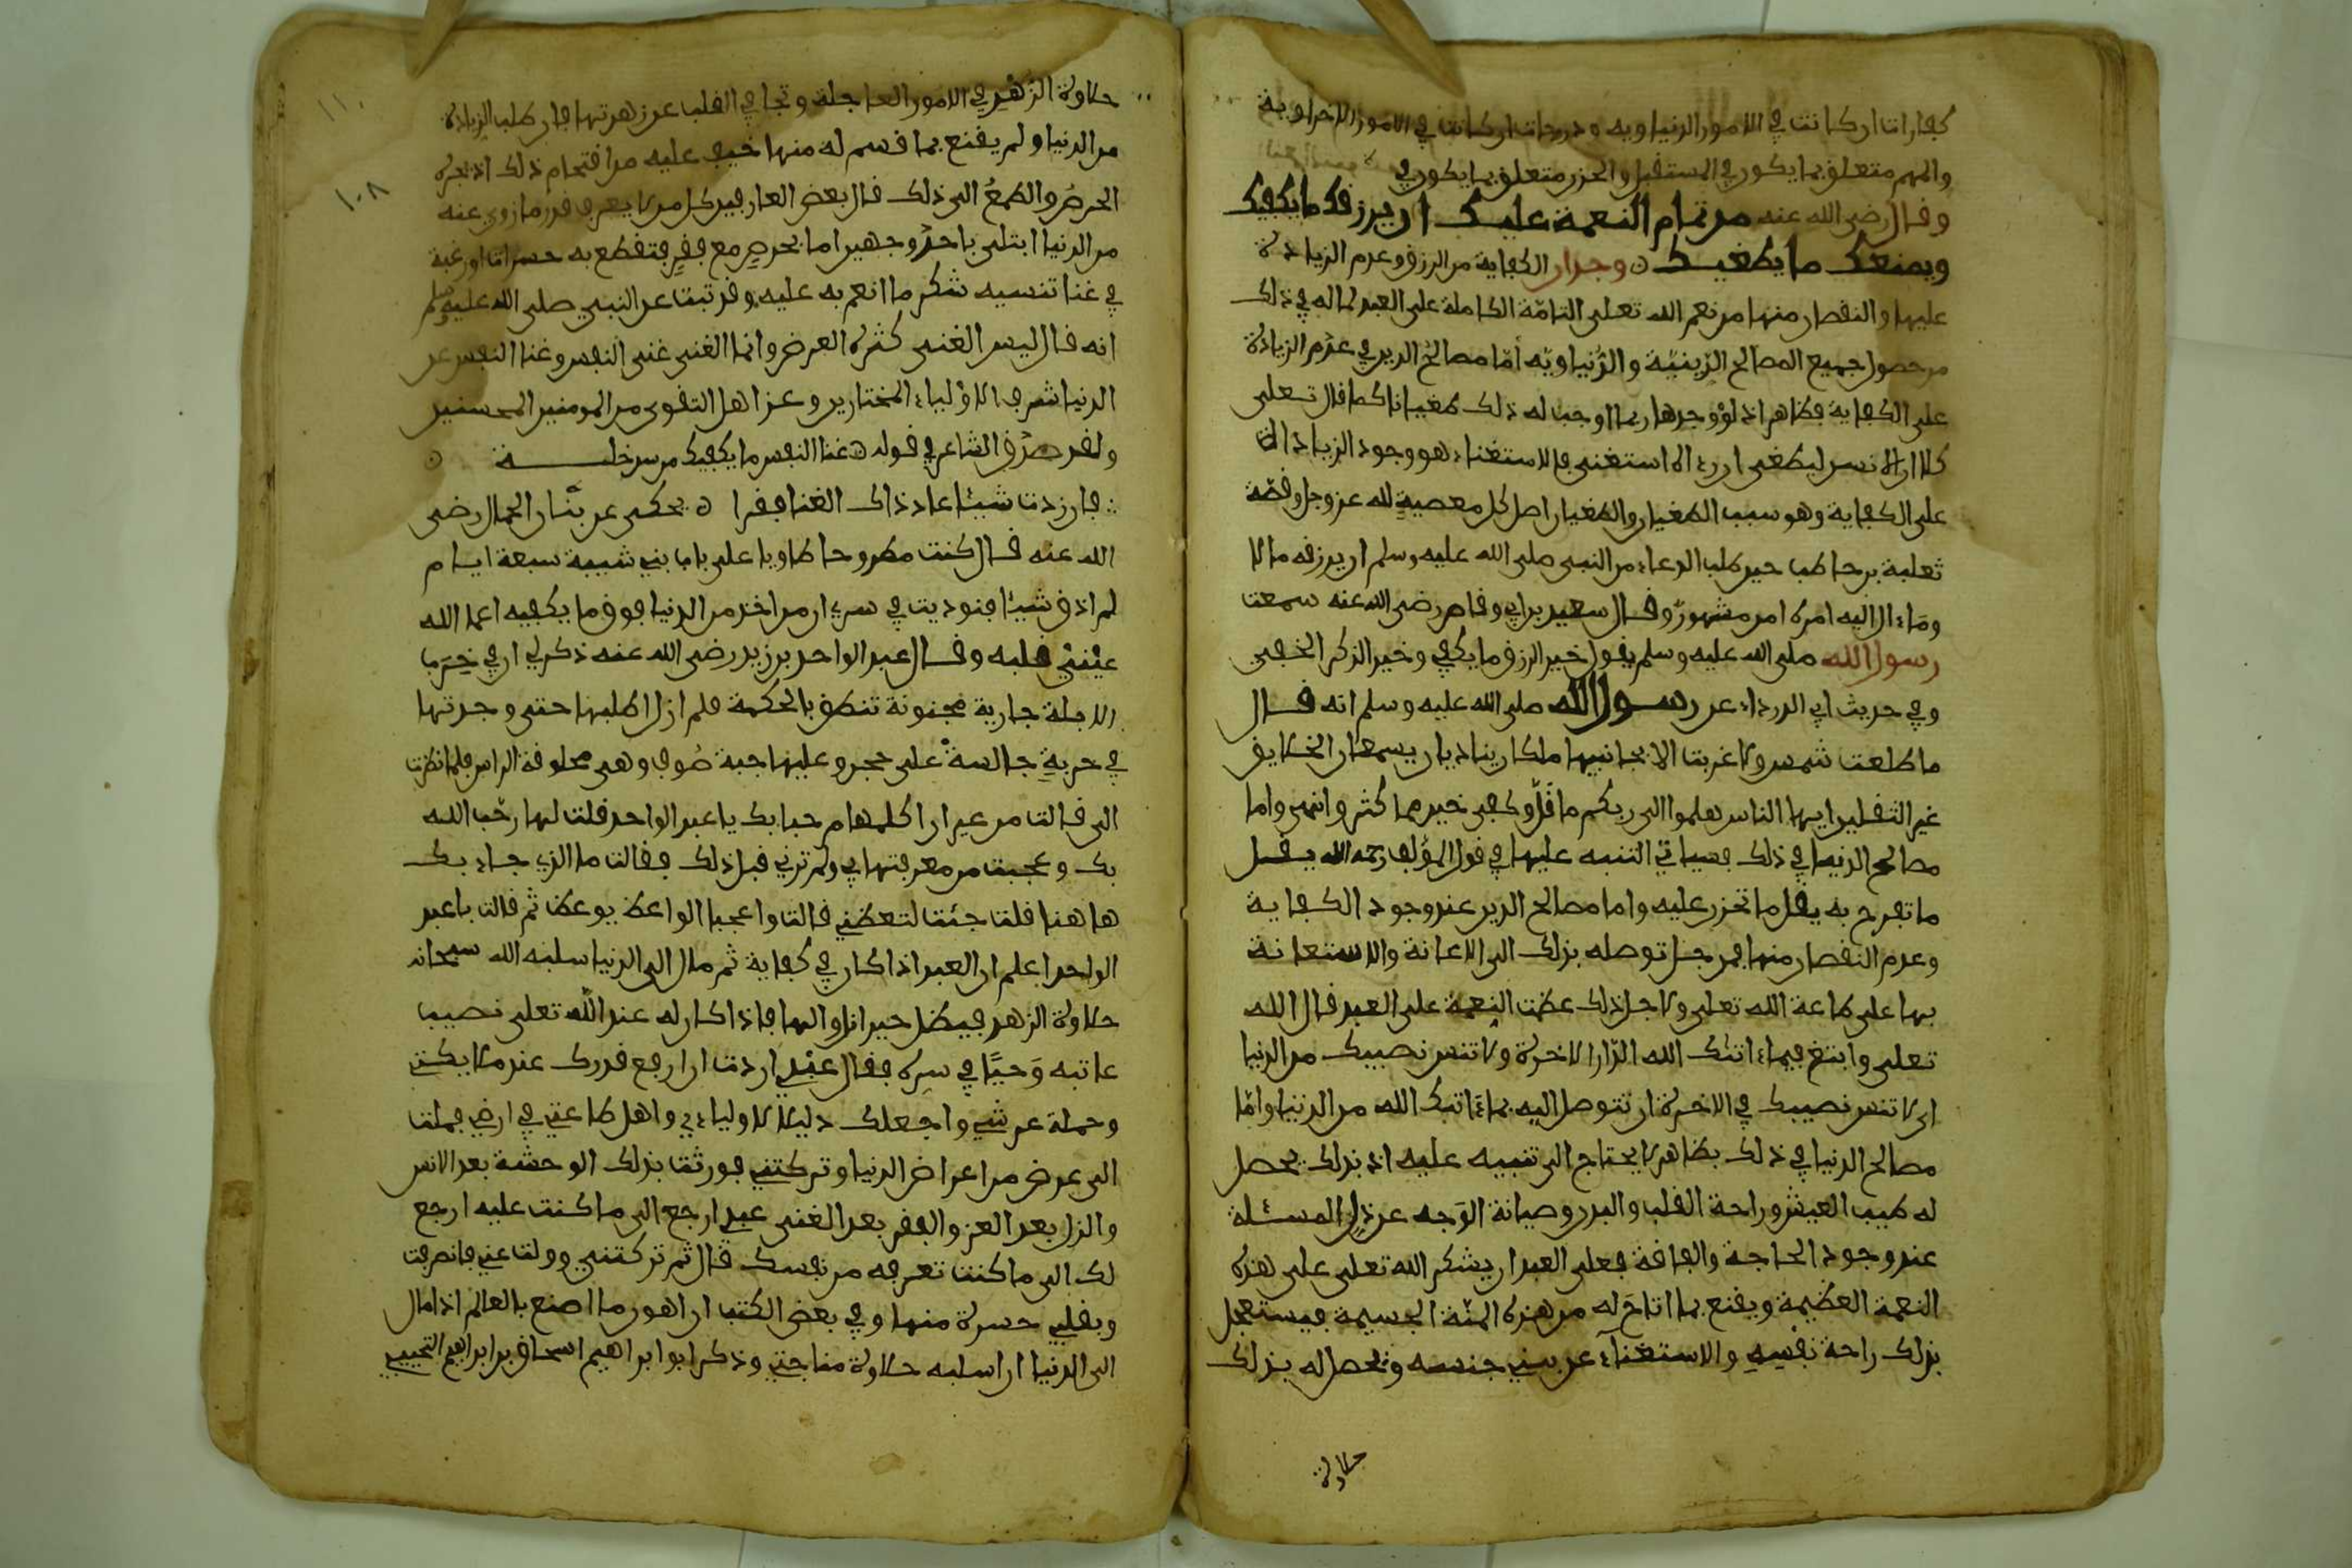 كفارات ان كانت في الامور الدنياويه ودرجات ان كانت في الامور الاخراوية
والهم متعلق بما يكون في المستقبل والحزن متعلق بما يكون في
وقال رضي الله عنه من تمام النعمة عليك ان يرزقك ما يكفيك
ويمنعك ما يطغيك وجدان الكفاية من الرزق وعدم الزيادة
عليها والنقصان منها من نعم الله تعلى التامّة الكاملة على العبد لما له في ذلك
من حصول جميع المصالح الدّينيّة والدّنياويّه أمّا مصالح الدين في عدم الزيادة
على الكفاية فظاهر اذ لو وجدها ربما اوجب له ذلك طغيانا كما قال تعلى
كلا ان الانسن ليطغى ان رءاه استغنى فالاستغناء هو وجود الزيادات
على الكفاية وهو سبب الطغيان والطغيان اصل كل معصية لله عز وجل وقصّة
ثعلبة بن حاطب حين طلب الدعاء من النبي صلى الله عليه وسلم ان يرزقه مالا
وماءال اليه امره امر مشهور وقال سعيد بن ابي وقاص رضي الله عنه سمعت
رسول الله صلى الله عليه وسلم يقول خير الرزق ما يكفي وخير الذكر الخفي
وفي حديث ابي الدرداء عن رسول الله صلى الله عليه وسلم انه قال
ما طلعت شمس ولا غربت الا بجانبيها ملكان يناديان يسمعان الخلايق
غير الثقلين ايها الناس هلموا الى ربكم ما قلّ وكفى خير مما كثر وانهى واما
مصالح الدنيا في ذلك فسياتي التنبيه عليها في قول المؤلف رحمه الله يقل
ما تفرح به يقل ما تحزن عليه واما مصالح الدين عند وجود الكفاية
وعدم النقصان منها فمن جل توصله بذلك الى الاعانة والاستعانة
بها على طاعة الله تعلى ولاجل ذلك عظمت النعمة على العبد قال الله
تعلى وابتغ فيماءاتك الله الدّار الاخرة ولا تنس نصيبك من الدنيا
اي لا تنس نصيبك في الاخرة ان تتوصل اليه بماءاتيك الله من الدنيا وامّا
مصالح الدنيا في ذلك بظاهر لا يحتاج الى تنبيه عليه اذ بذلك يحصل
له طيب العيش وراحة القلب والبدن وصيانة الوَجه عن ذل المسئلة
عند وجود الحاجة والفاقة فعلى العبد ان يشكر الله تعلى على هذه
النعمة العظيمة ويقنع بما اتاح له من هذه المنّة الجسيمة فيستعجل
بذلك راحة نفسِهِ والاستغناء عن بني جنسه وتحصل له بذلك
حلاوة
حلاوة الزهد في الامور العاجلة وتجافي القلب عن زهرتها فان طلب الزيادة
من الدنيا ولم يقنع بما قسم له منها خيف عليه من اقتحام ذلك اذ يجره
الحرصُ والطمعُ الى ذلك قال بعض العارفين كل من لا يعرف قدر ما زوي عنه
من الدنيا ابتلى باحد وجهين اما بحرصٍ مع فقرٍ فتقطع به حسرات او رغبة
في غنا تنسيه شكر ما انعم به عليه وقد ثبت عن النبي صلى الله عليه وسلم
انه قال ليس الغنى كثرة العرض وانما الغنى غنى النفس وغنا النفس عن
الدنيا شرف الاولياء المختارين وعز اهل التقوى من المومنين المحسنين
ولقد صدق الشاعر في قوله غنا النفس ما يكفيك من سد خلة
فان زدت شيئا عاد ذاك الغنا فقرا يحكى عن بنّان الحمال رضي
الله عنه قال كنت مطروحا طاويا على باب بني شيبة سبعة ايام
لم اذق شيئا فنوديت في سري ان من اخذ من الدنيا فوق ما يكفيه اعما الله
عينيْ قلبه وقال عبد الواحد بن زيد رضي الله عنه ذكر لي ان في خِرَب
الابلة جارية مجنونة تنطق بالحكمة فلم ازل اطلبها حتى وجدتها
في خربةٍ جالسةً على حجر وعليها جبة صُوف وهي محلوقة الراس فلما نظرت
الى قالت من غير ان اكلمها مرحبا بك يا عبد الواحد فقلت لها رحّب الله
بك وعجبت من معرفتها بي ولم ترني قبل ذلك فقالت ما الذي جاء بك
هاهنا فقلت جئت لتعظني قالت واعجبا الواعظ يوعظ ثم قالت يا عبد
الواحد اعلم ان العبد اذا كان في كفاية ثم مال الى الدنيا سلبه الله سبحانه
حلاوة الزهد فيظل حيران والها فاذا كان له عند الله تعلى نصيب
عاتبه وَحيًا في سره فقال عبدي اردت ان ارفع قدرك عند ملايكتي
وحملة عرشي واجعلك دليلا لاوليائي واهل طاعتي في ارضي فملت
الى عرض من اعراض الدنيا وتركتني فورثت بذلك الوحشة بعد الانس
والذل بعد العز والفقر بعد الغنى عبدي ارجع الى ما كنت عليه ارجع
لك الى ما كنت تعرفه من نفسك قال ثم تركتني وولت عني فانصرفت
وبقلبي حسرة منها وفي بعض الكتب ان اهون ما اصنع بالعالم اذا مال
الى الدنيا ان اسلبه حلاوة مناجتي وذكر ابو ابراهيم اسحاق بن ابراهيم التجيبي
١١٠
١٠٨